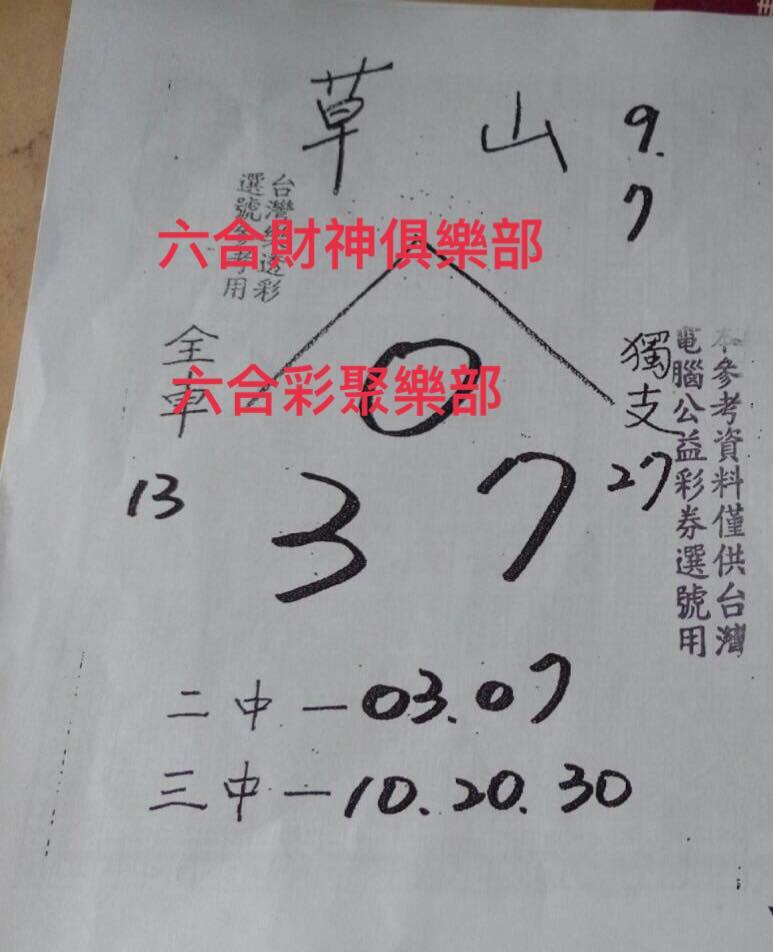 草山
9.
7
台灣樂透彩
選號參考用
六合財神俱樂部
全車
13
0
六合彩聚樂部
3 7
獨支
27
本參考資料僅供台灣
電腦公益彩券選號用
二中—03.07
三中—10.20.30